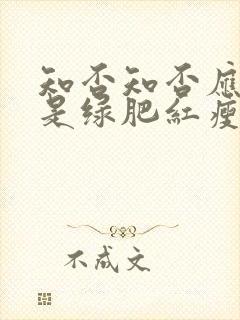 知否知否應
是绿肥紅瘦
不成文